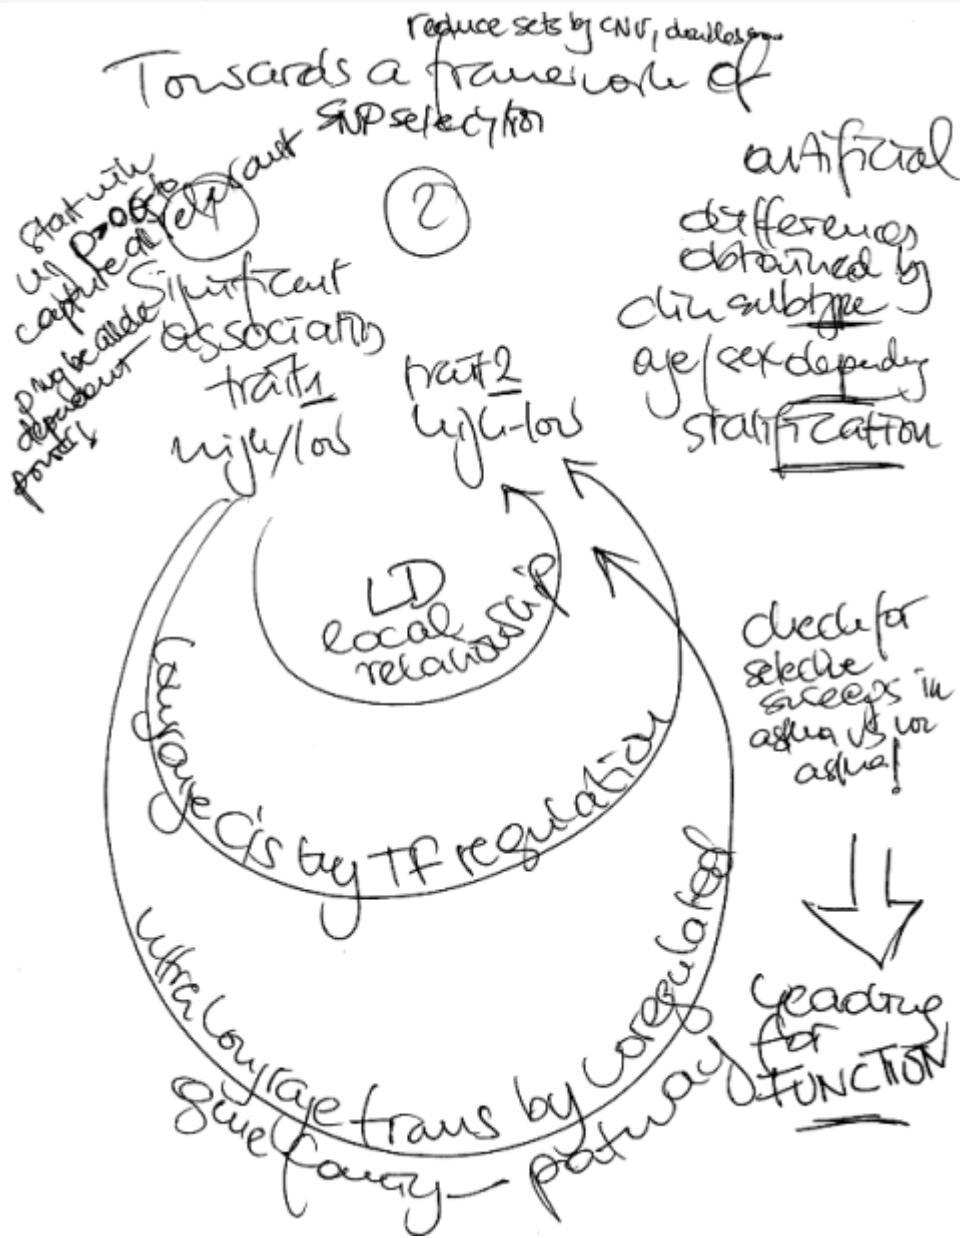 reduce sets by CNV,
Towards a framework of
SNP selection
start with
p>0.05 to
capture all relevant
p may be allele
dependent
1
2
Significant
association
trait 1
high/low
trait 2
high-low
artificial
differences
obtained by
clin subtype
age/sex depending
stratification
LD
local
relationship
long range cis by TF regulation
ultra long range trans by coregulated
gene family - pathway
check for
selective
sweeps in
asthma vs non
asthma!
leading
for
FUNCTION